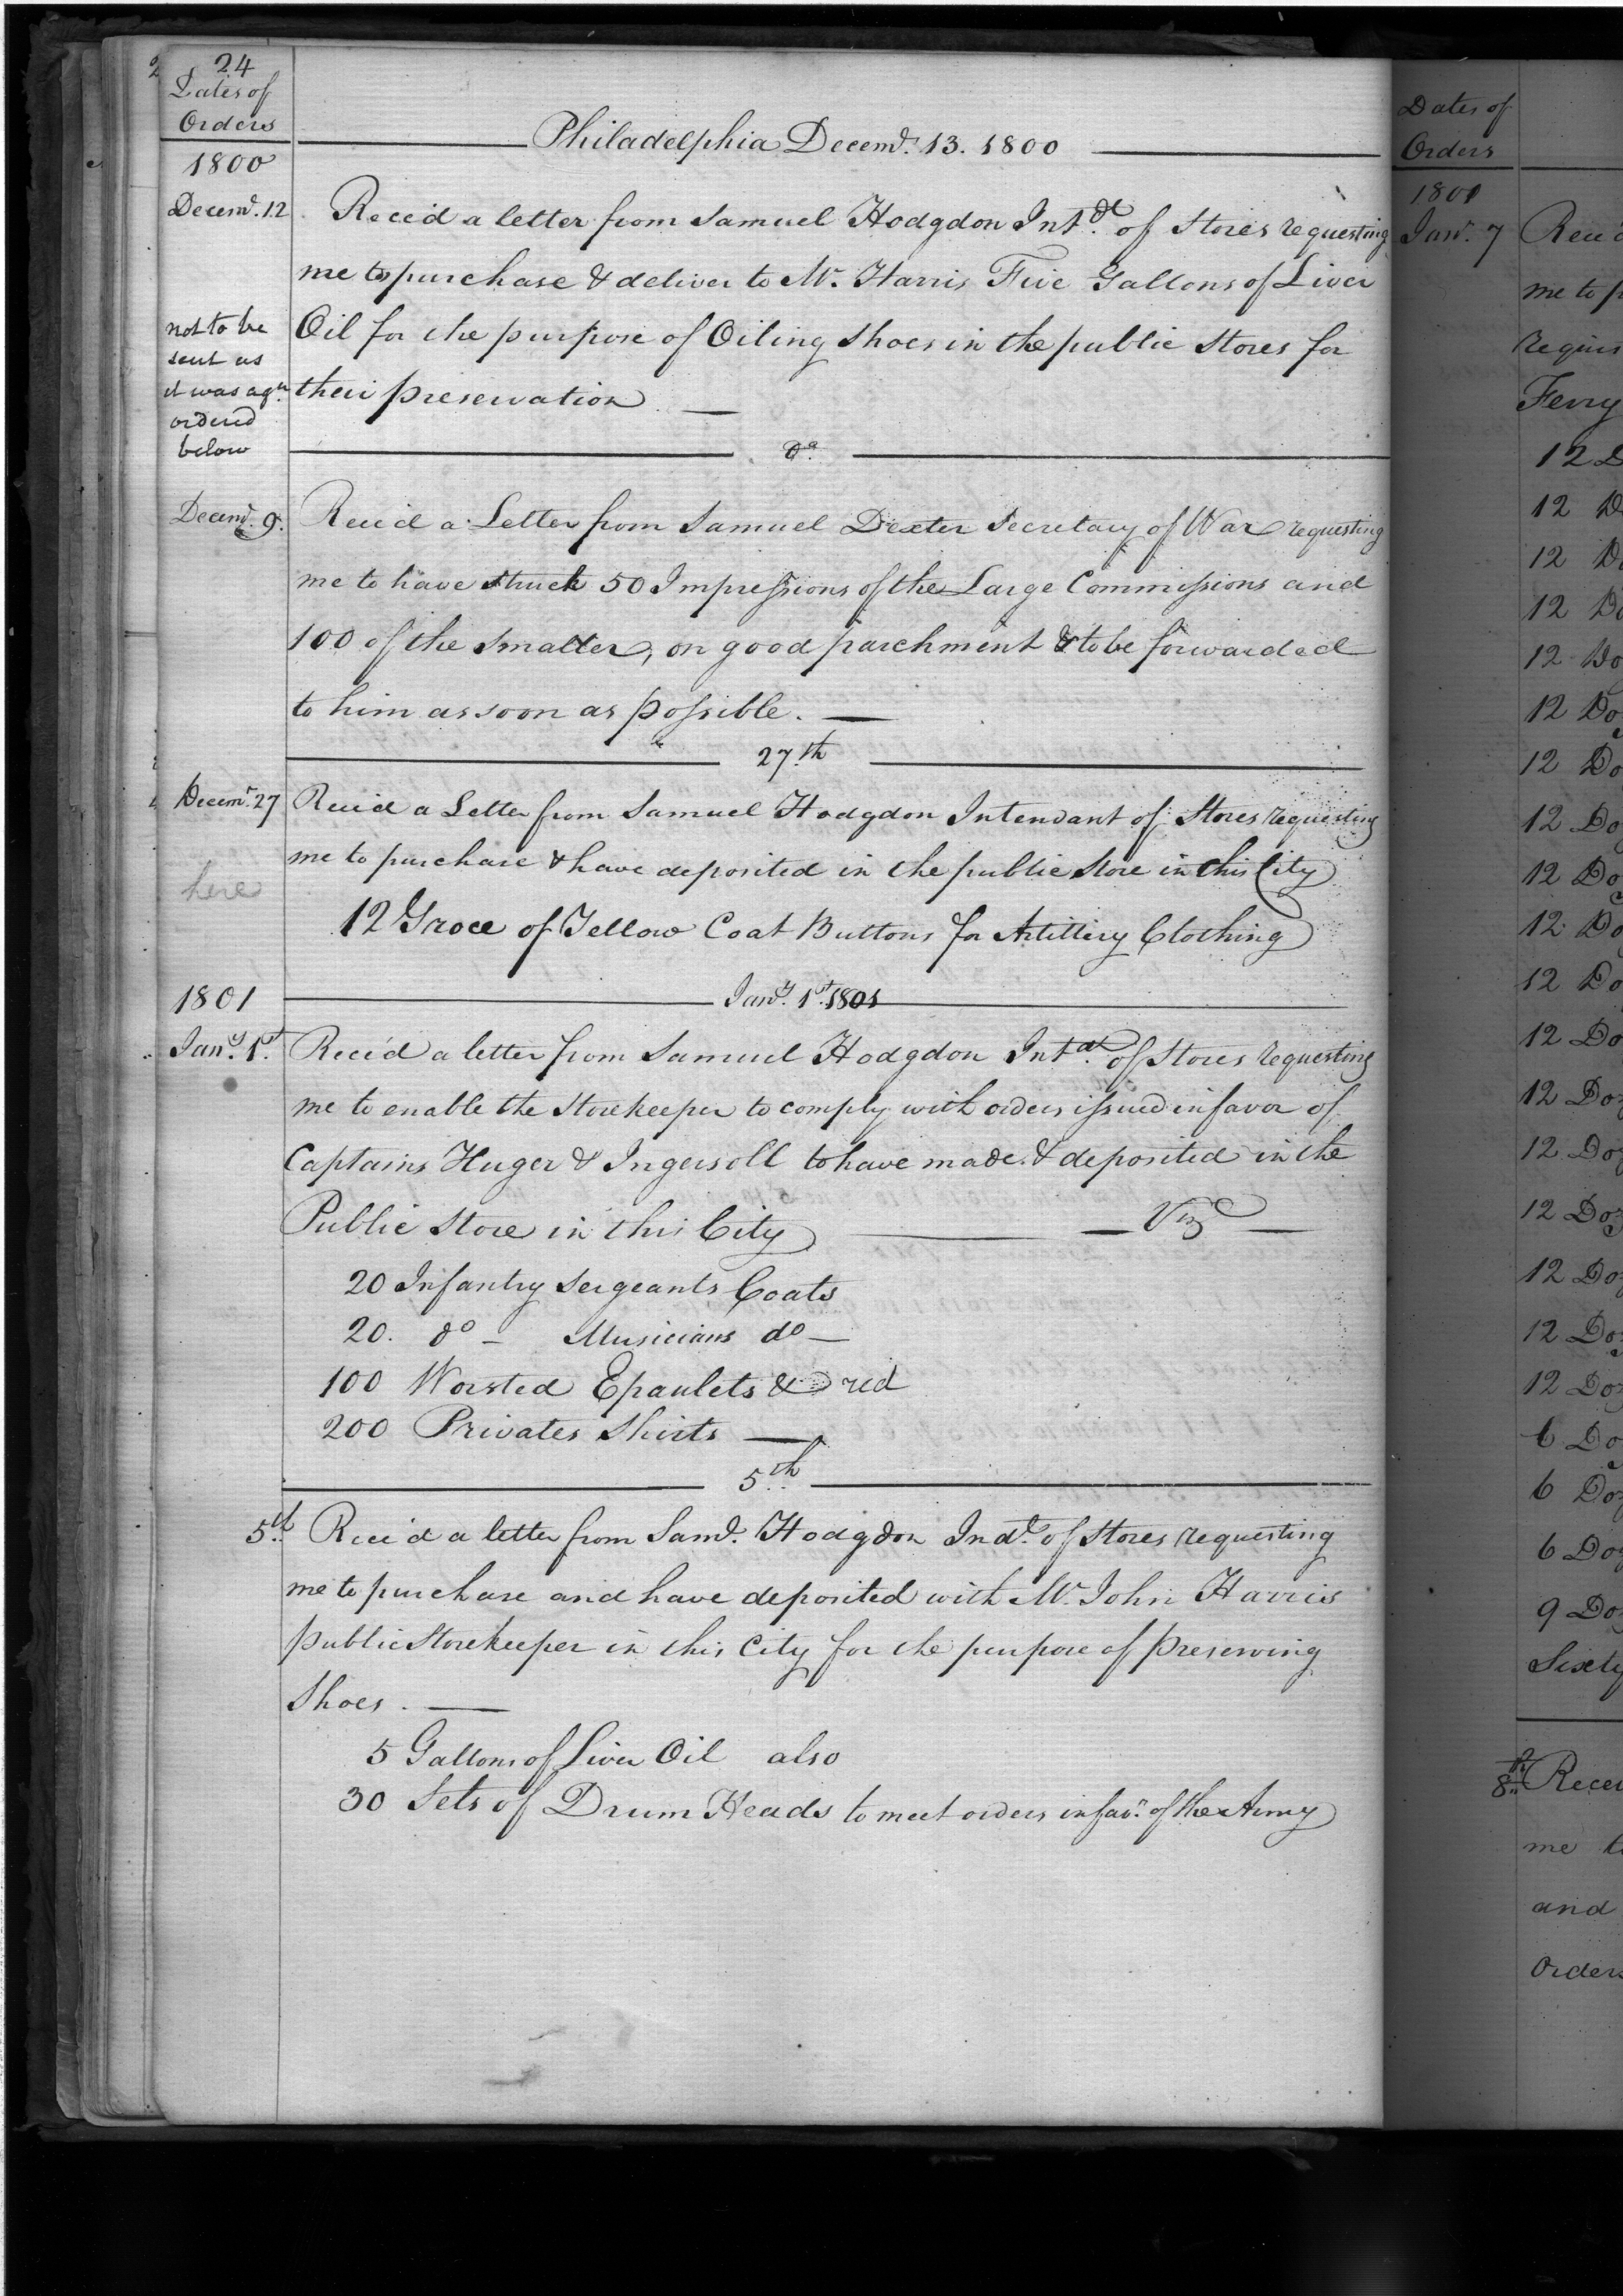 24
Dates of
Orders
Philadelphia Decemr. 13. 1800
1800
Decemr. 12
Rece'd a letter from Samuel Hodgdon Intdt. of Stores requesting
me to purchase & deliver to Mr. Harris Five Gallons of Liver
Oil for the purpose of Oiling Shoes in the public Stores for
their preservation. —
not to be
sent as
it was agn.
ordered
below
Do.
Decemr. 9.
Rece'd a Letter from Samuel Dexter Secretary of War requesting
me to have struck 50 Impressions of the Large Commissions and
100 of the Smaller, on good parchment & to be forwarded
to him as soon as possible. —
27.th
Decemr. 27
Rece'd a Letter from Samuel Hodgdon Intendant of Stores requesting
me to purchase & have deposited in the public Store in this City
here
12 Groce of Yellow Coat Buttons for Artillery Clothing
1801
Jany. 1st. 1801
Jany. 1st.
Rece'd a letter from Samuel Hodgdon Intdt. of Stores requesting
me to enable the Storekeeper to comply with orders issued in favor of
Captains Huger & Ingersoll to have made & deposited in the
Public Store in this City — Viz —
20 Infantry Sergeants Coats
20. do — Musicians do —
100 Worsted Epaulets & red
200 Privates Shirts —
5.th
5.th Rece'd a letter from Saml. Hodgdon Indt. of Stores requesting
me to purchase and have deposited with Mr. John Harris
public Storekeeper in this City for the purpose of preserving
Shoes. —
5 Gallons of Liver Oil also
30 Sets of Drum Heads to meet orders in favr. of the Army
Dates of
Orders
1801
Jany. 7
me to
Ferry
12
12
12
12
12 Do
12 Do
12 Do
12 Do
12 Do
12 Do
12 Do
12 Do
12 Doz
12 Doz
12 Doz
12 Doz
12 Doz
12 Doz
6 Do
6 Doz
6 Doz
9 Doz
Sixty
8th
me
and
Orders